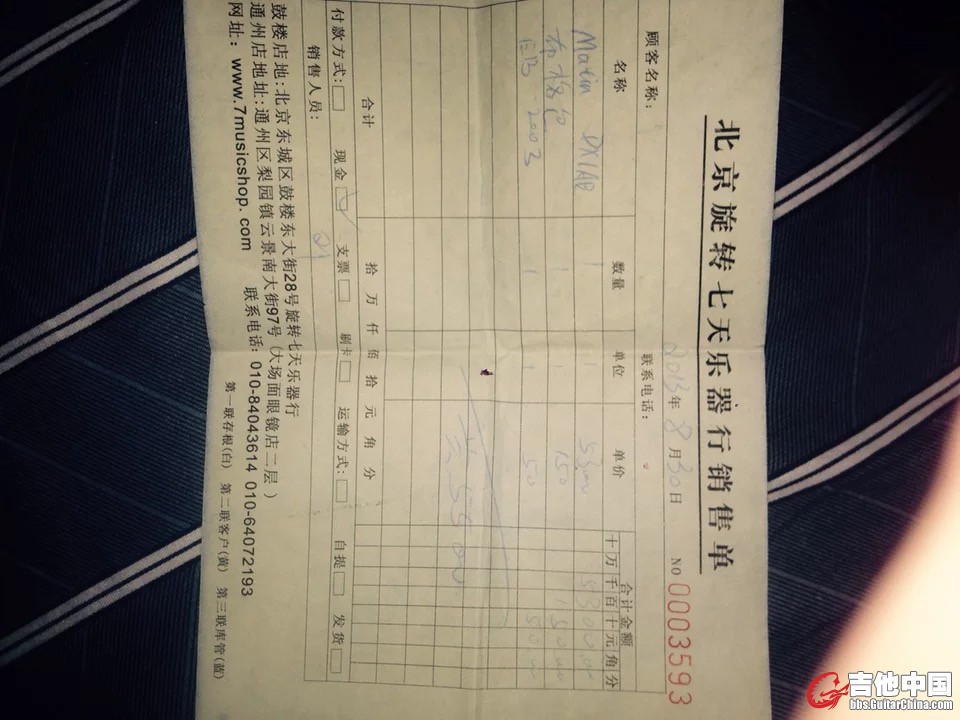 北京旋转七天乐器行销售单
2013年8月30日 NO 0003593
顾客名称: 联系电话:
名称 数量 单位 单价 合计金额
十万千百十元角分
Matin DX1AE 1 1 5300 5300.00
1 1 150 150.00
EB 2003 1 1 50 50.00
5500
合计 拾 万 仟 佰 拾 元 角 分
付款方式:□ 现金□ 支票□ 刷卡□ 运输方式:□ 自提□ 发货□
销售人员:
鼓楼店地:北京东城区鼓楼东大街28号旋转七天乐器行
通州店地址:通州区梨园镇云景南大街97号(大场面眼镜店二层)
网址: www.7musicshop.com 联系电话: 010-84043614 010-64072193
第一联存根(白) 第二联客户(黄) 第三联库管(蓝)
吉他中国
bbs.GuitarChina.com